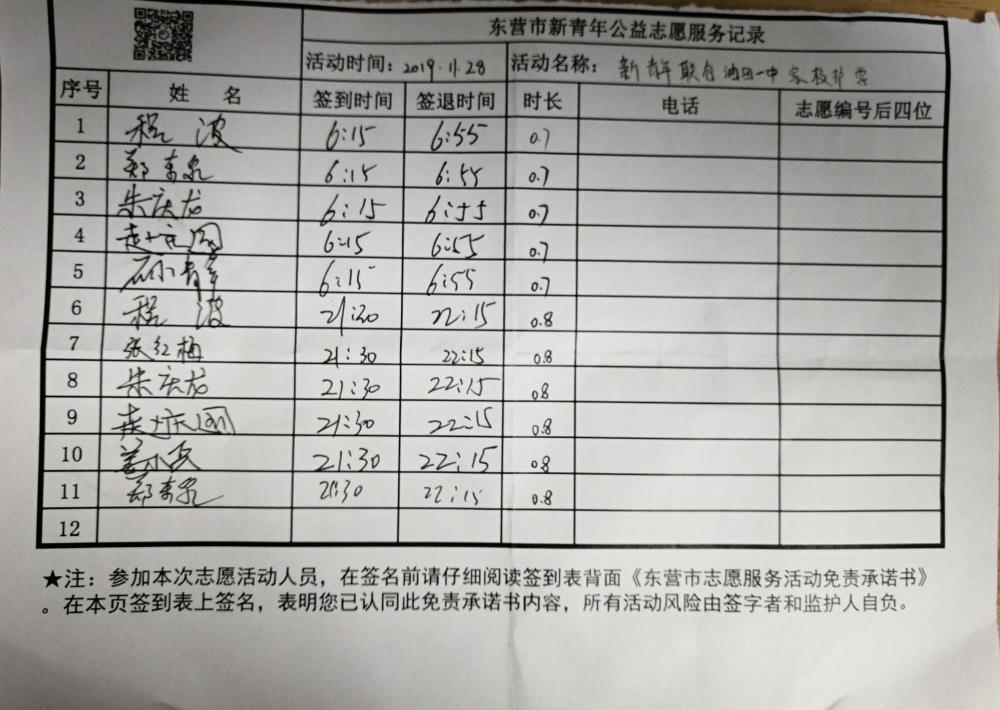 东营市新青年公益志愿服务记录
活动时间：2019.11.28 活动名称：新青年联合油田一中家校护学
序号 姓 名 签到时间 签退时间 时长 电话 志愿编号后四位
1 程波 6:15 6:55 0.7
2 郑东泉 6:15 6:55 0.7
3 朱庆龙 6:15 6:55 0.7
4 6:15 6:55 0.7
5 6:15 6:55 0.7
6 程波 21:30 22:15 0.8
7 张红梅 21:30 22:15 0.8
8 朱庆龙 21:30 22:15 0.8
9 21:30 22:15 0.8
10 姜小兵 21:30 22:15 0.8
11 郑东泉 21:30 22:15 0.8
12
★注：参加本次志愿活动人员，在签名前请仔细阅读签到表背面《东营市志愿服务活动免责承诺书》
。在本页签到表上签名，表明您已认同此免责承诺书内容，所有活动风险由签字者和监护人自负。